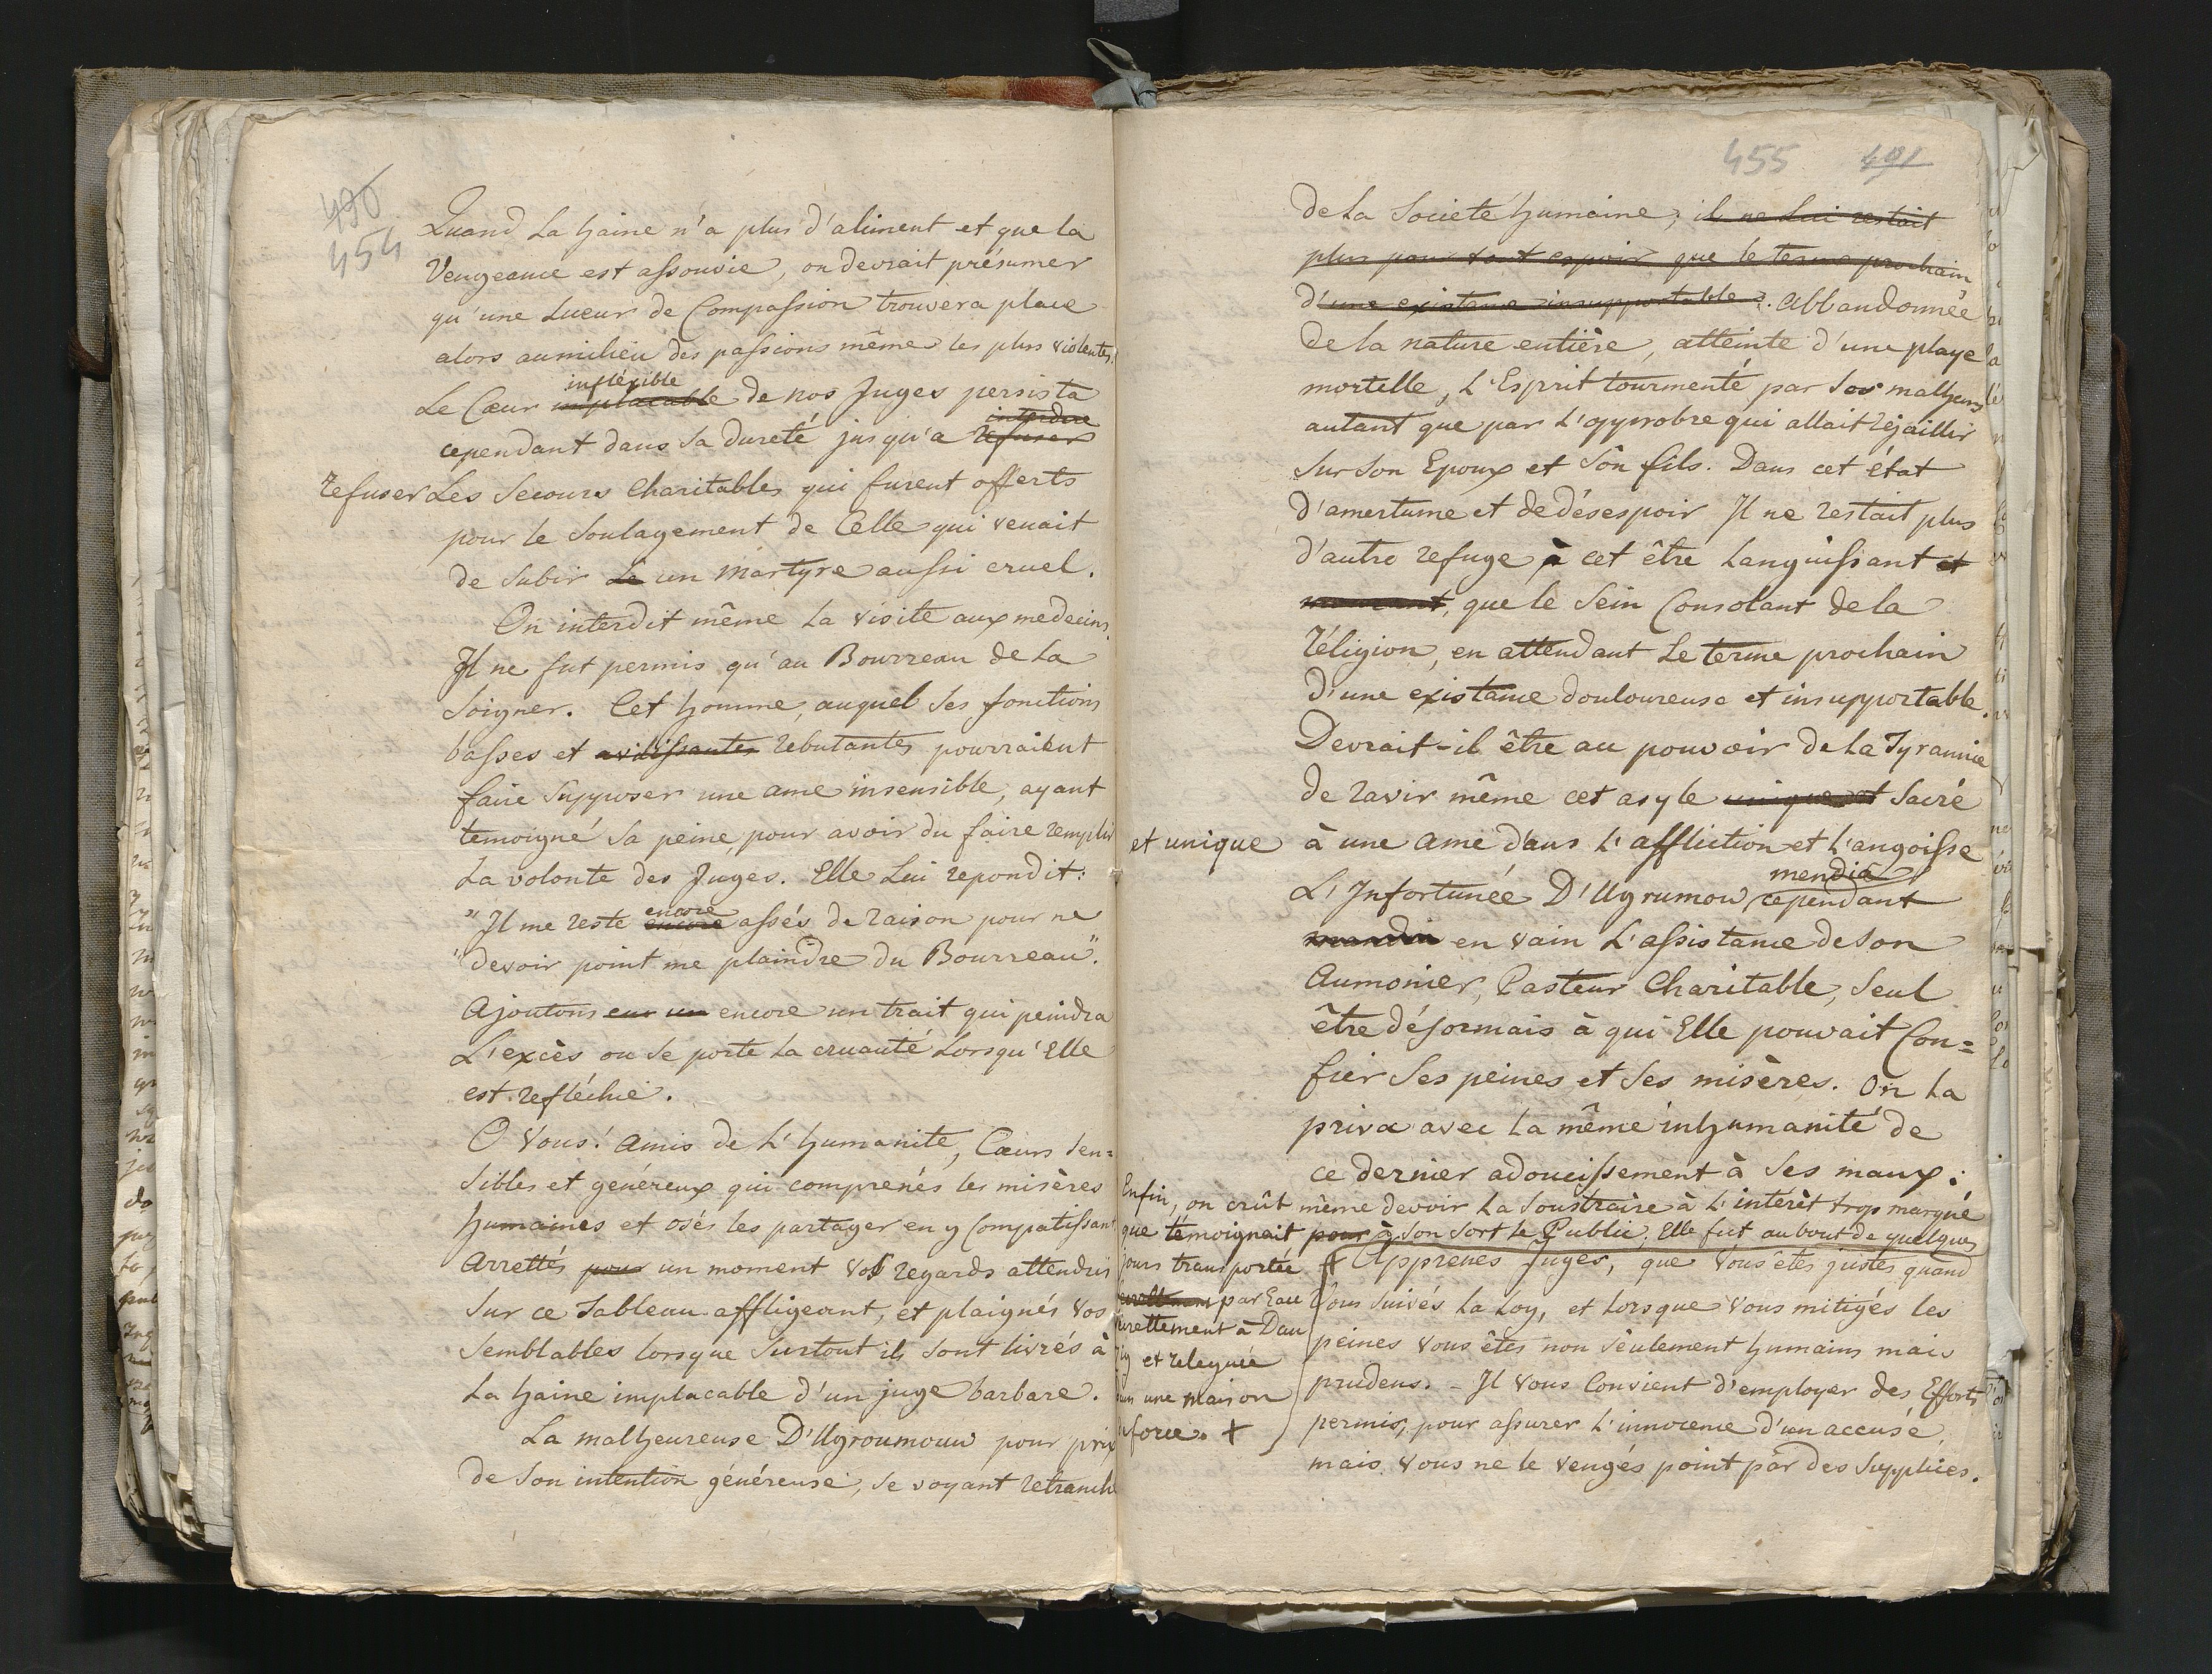 490
454
Quand La haine n'a plus d'aliment et que la
Vengeance est assouvie, on devrait présumer
qu'une Lueur de Compassion trouvera place
alors au milieu des passions même les plus violentes.
infléxible
Le Cœur implacable de nos Juges persista
interdire
cependant dans sa dureté jusqu'a refuser
refuser Les Secours Charitables qui furent offerts
pour le Soulagement de Celle qui venait
de subir Le un Martyre aussi cruel.
On interdit même La visite aux medecins.
Il ne fut permis qu'au Bourreau de La
Soigner. Cet homme, auquel ses fonctions
basses et avilissantes rebutantes pourraient
faire Supposer une ame insensible, ayant
temoigné sa peine, pour avoir du faire remplir
La volonte des Juges. Elle Lui repondit:
encore
"Il me reste encore assés de raison pour ne
"devoir point me plaindre du Bourreau".
Ajoutons un encore un trait qui peindra
L'excès ou se porte La cruauté Lorsqu'Elle
est refléchie.
O Vous! Amis de L'humanité, Cœurs sen=
sibles et généreux qui comprenés les misères
humaines et osés les partager en y Compatissant
Arrettés pour un moment Vos regards attendris
Sur ce Tableau affligeant, et plaignés vos
Semblables lorsque Surtout ils sont livrés à
La haine implacable d'un juge barbare.
La malheureuse D'Ugroumouw pour prix
de Son intention généreuse, se voyant retranch
455 491
de La Societé humaine; il ne Lui restait
plus pour tout espoir que le terme prochain
d'une existance insupportable. Abbandonnée
de la nature entière, atteinte d'une playe
mortelle, L'Esprit tourmenté par ses malheurs
autant que par L'opprobre qui allait réjaillir
Sur son Epoux et Son fils. Dans cet état
d'amertume et de désespoir Il ne restait plus
d'autre refuge à cet être Languissant et
mourant, que le Sein Consolant de la
réligion, en attendant Le terme prochain
d'une existance douloureuse et insupportable.
Devrait-il être au pouvoir de La Tyrannie
de ravir même cet asyle unique et Sacré
et unique à une ame dans L'affliction et L'angoisse
mendia
L'Infortunée D'Ugrumow cependant
en vain L'assistance de son
Aumonier, Pasteur Charitable, Seul
être désormais à qui Elle pouvait Con=
fier Ses peines et Ses misères. On La
priva avec La même inhumanité de
ce dernier adoucissement à Ses maux:
Enfin, on crût même devoir La Soustraire à L'intérêt trop marqué
que témoignait pour à Son Sort le Public. Elle fut au bout de quelques
jours transportée
par Eau
directtement à Dan
zig et releguée
dans une maison
de force. +
Apprenés Juges, que Vous êtes justes quand
Vous suivés La Loy, et Lorsque Vous mitigés les
peines Vous êtes non sèulement humains mais
prudens. - Il Vous Convient d'employer des Efforts
permis, pour assurer L'innocence d'un accusé,
mais Vous ne le vengés point par des Supplices.